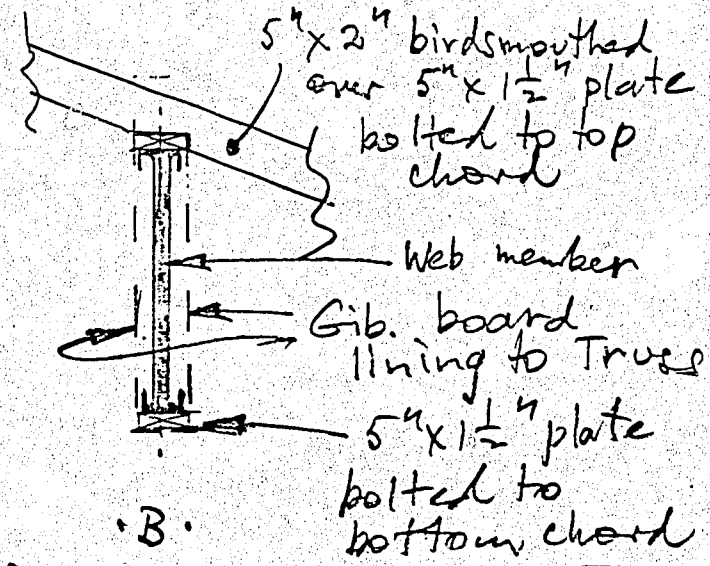 5" x 2" birdsmouthed
over 5" x 1 1/2" plate
bolted to top
chord
Web member
Gib. board
lining to Truss
5" x 1 1/2" plate
bolted to
bottom chord
·B·